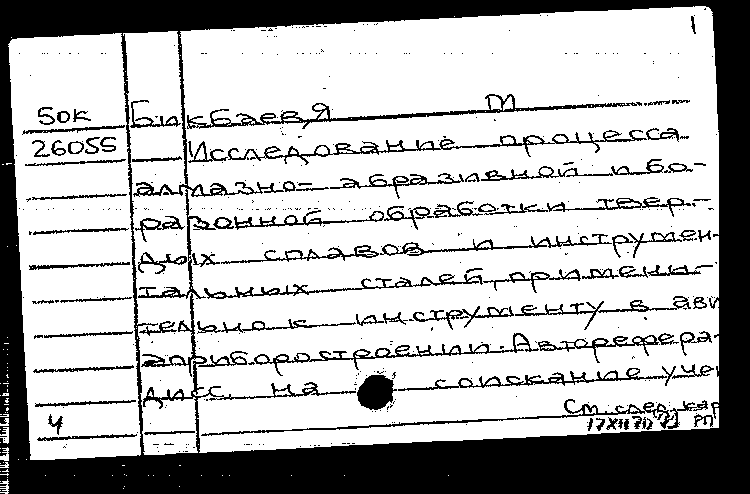 1
50к Бикбаев, Я М
26055 Исследование процесса
алмазно- абразивной и бо-
разонной обработки твер-
дых сплавов и инструмен-
тальных сталей, примени-
тельно к инструменту в ави
априборостроении. Авторефера
дисс. на соискание учен
См. след. кар
4 РП